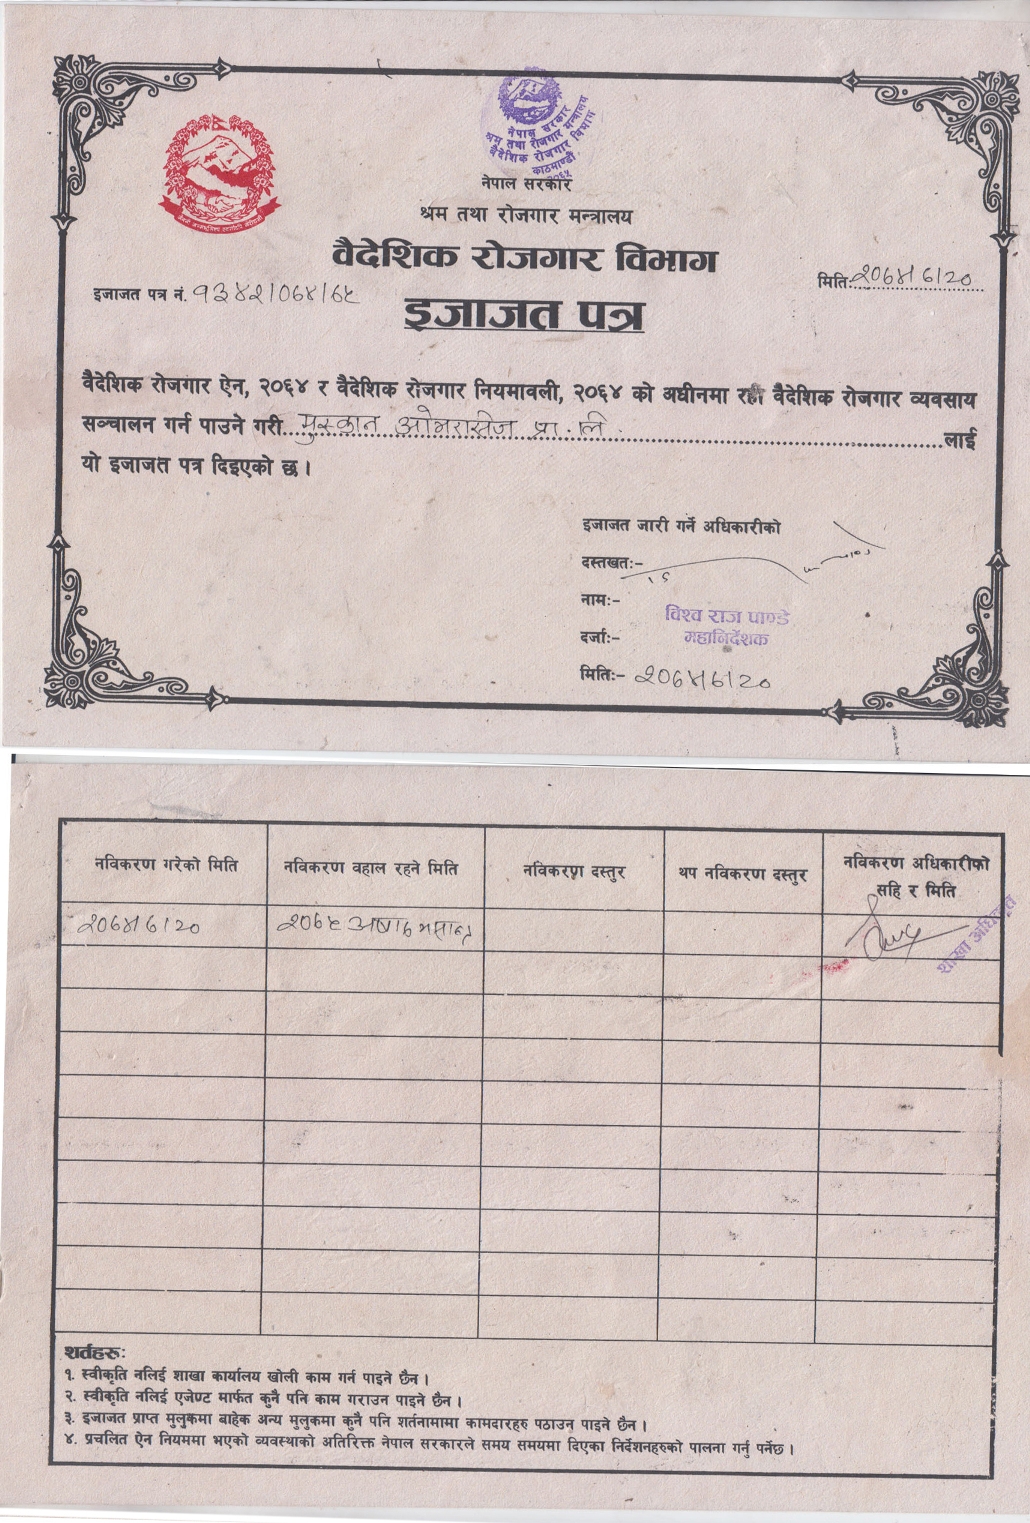 नेपाल सरकार
श्रम तथा रोजगार मन्त्रालय
वैदेशिक रोजगार विभाग
काठमाण्डौं
२०६५
नेपाल सरकार
श्रम तथा रोजगार मन्त्रालय
वैदेशिक रोजगार विभाग
इजाजत पत्र नं.
मिति:
इजाजत पत्र
वैदेशिक रोजगार ऐन, २०६४ र वैदेशिक रोजगार नियमावली, २०६४ को अधीनमा रही वैदेशिक रोजगार व्यवसाय
सञ्चालन गर्न पाउने गरी मुस्कान ओभरसिज प्रा.लि. लाई
यो इजाजत पत्र दिइएको छ।
इजाजत जारी गर्ने अधिकारीको
दस्तखतः-
नामः- विश्व राज पाण्डे
दर्जाः- महानिर्देशक
मितिः-
नविकरण गरेको मिति नविकरण वहाल रहने मिति नविकरण दस्तुर थप नविकरण दस्तुर नविकरण अधिकारीको सहि र मिति
शाखा अधिकृत
शर्तहरुः
१. स्वीकृति नलिई शाखा कार्यालय खोली काम गर्न पाइने छैन।
२. स्वीकृति नलिई एजेण्ट मार्फत कुनै पनि काम गराउन पाइने छैन।
३. इजाजत प्राप्त मुलुकमा बाहेक अन्य मुलुकमा कुनै पनि शर्तनामामा कामदारहरु पठाउन पाइने छैन।
४. प्रचलित ऐन नियममा भएको व्यवस्थाको अतिरिक्त नेपाल सरकारले समय समयमा दिएका निर्देशनहरुको पालना गर्नु पर्नेछ।